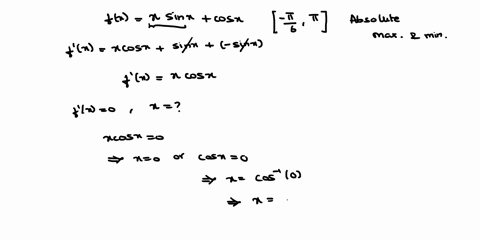 f(x) = x sinx + cosx [-π/6, π] Absolute
max. & min.
f'(x) = x cosx + sinx + (-sinx)
f'(x) = x cosx
f'(x) = 0 , x = ?
x cosx = 0
⇒ x = 0 or cosx = 0
⇒ x = cos⁻¹(0)
⇒ x =